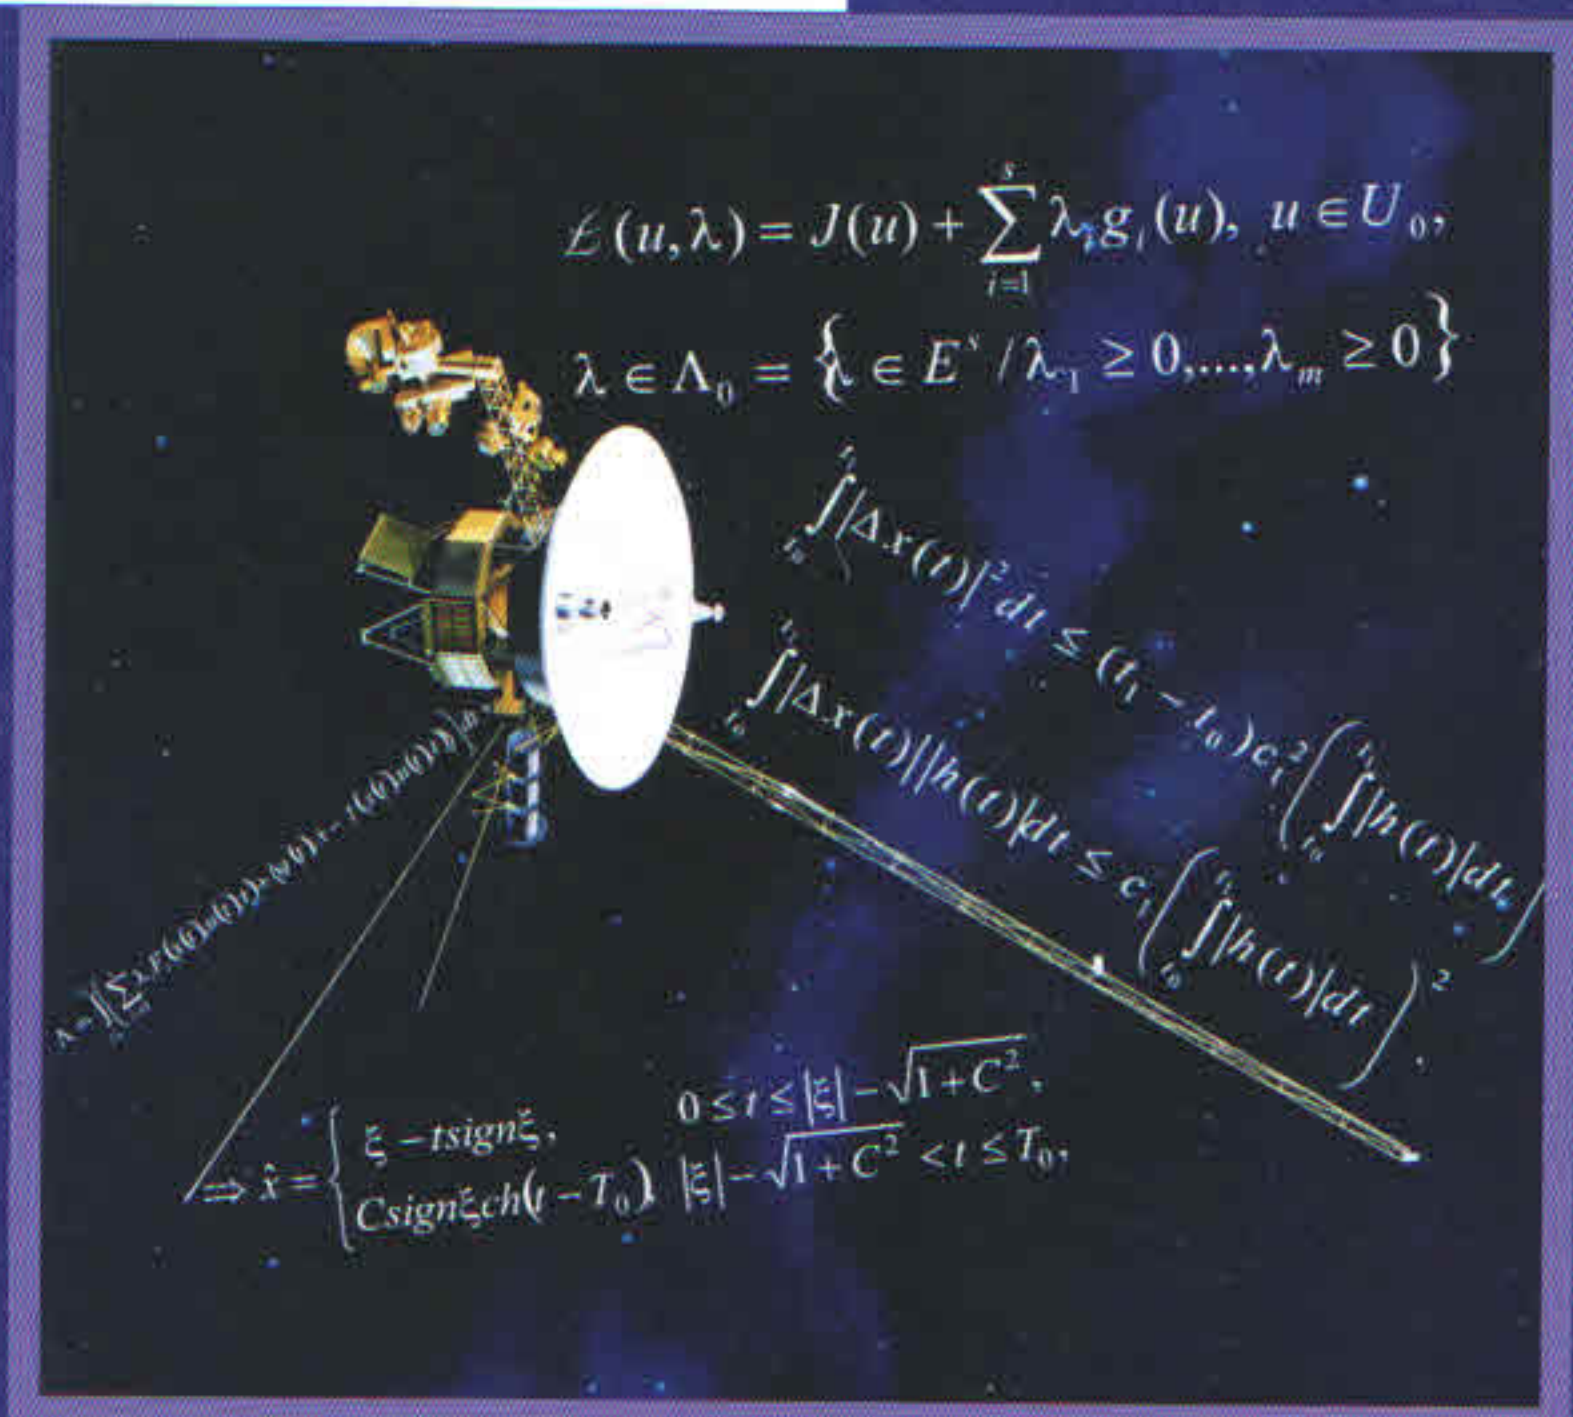 ℒ(u,λ) = J(u) + ∑_{i=1}^{s} λ_i g_i(u), u ∈ U_0,
λ ∈ Λ_0 = {λ ∈ E^s / λ_1 ≥ 0,...,λ_m ≥ 0}
∫_{t_0}^{t_1} |Δx(t)|^2 dt ≤ (t_1 − t_0) c_1^2 (∫_{t_0}^{t_1} |h(t)| dt)
∫_{t_0}^{t_1} |Δx(t)||h(t)| dt ≤ c_1 (∫_{t_0}^{t_1} |h(t)| dt)^2.
⇒ x̂ = { ξ − tsignξ, 0 ≤ t ≤ |ξ| − √(1 + C^2),
Csignξch(t − T_0) |ξ| − √(1 + C^2) < t ≤ T_0,